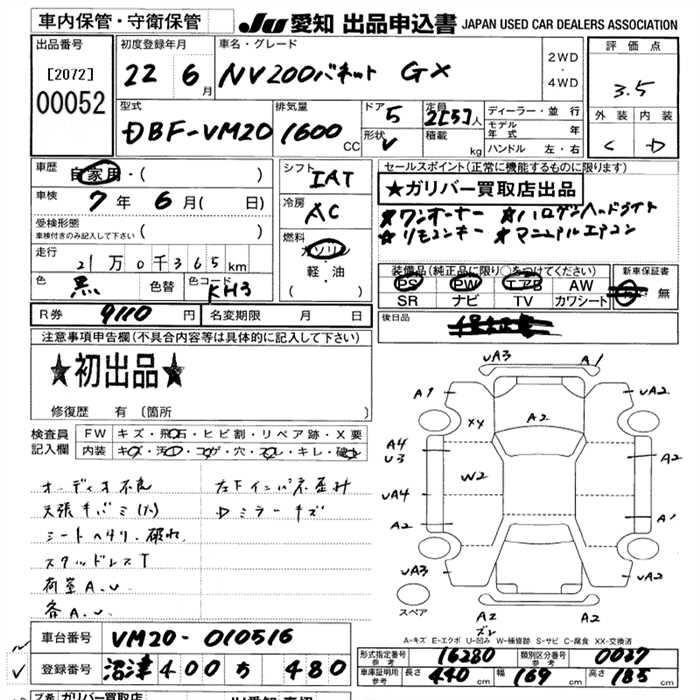 車内保管・守衛保管 JU 愛知 出品申込書 JAPAN USED CAR DEALERS ASSOCIATION
出品番号
[2072]
00052
初度登録年月
22 6月
車名・グレード
NV200バネット GX
2WD
・
4WD
評価点
3.5
外装 内装
C D
型式
DBF-VM20
排気量
1600 CC
ドア
5
形状
V
定員
2[5]人
積載 kg
ディーラー・並行
モデル年式 年
ハンドル 左・右
車歴
自家用・( )
車検
7年 6月( 日)
受検形態
車検付きのみ記入して下さい ( )
走行
21万0千365km
色
黒
色替
色コード
KH3
シフト
IAT
冷房
AC
燃料
ガソリン
軽・油
( )
セールスポイント(正常に機能するものに限ります)
★ガリバー買取店出品
★ワンオーナー ★ハロゲンヘッドライト
★リモコンキー ★マニュアルエアコン
装備品(純正品に限り○をつけてください)
PS PW エアB AW
SR ナビ TV カワシート
新車保証書
無
後日品
R券 9110円
名変期限 月 日
注意事項申告欄(不具合内容等は具体的に記入して下さい)
★初出品★
修復歴 有 〔箇所 〕
検査員記入欄
FW キズ・飛石・ヒビ割・リペア跡・X要
内装 キズ・汚レ・コゲ・穴・スレ・キレ・破レ
オーディオ不良 左下インパネ歪み
天張キバミ(大) Dミラーキズ
シートヘタリ・破れ
スタッドレスT
荷室A.U
各A.U
UA3 A1
A1 UA2
XX A2
A4
U3
A2
W2
UA4
A2 A1
UA3 UA2
スペア
A2 A2
ズレ
A-キズ E-エクボ U-凹み W-補修跡 S-サビ C-腐食 XX-交換済
車台番号 VM20-010516
登録番号 沼津 400 ち 480
形式指定番号 参考 16280
類別区分番号 参考 0037
車庫証明用 参考 長さ 440 cm 幅 169 cm 高さ 185 cm
ガリバー買取店
JU愛知